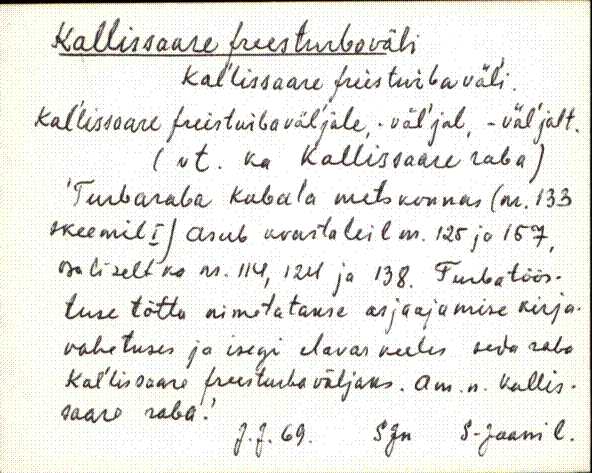 Kallissaare freesturbaväli
Kal'lissaare freisturba väl'i.
Kal'lissaare freisturbaväl'jale, -väl'jal, -väl'jalt.
(vt. ka Kallissaare raba)
'Turbaraba Kabala metskonnas (nr. 133
skeemil I) asub kvartaleil nr. 125 ja 157,
osaliselt ka nr. 114, 124 ja 138. Turbatöös-
tuse tõttu nimetatakse asjaajamise kirja-
vahetuses ja isegi elavas keeles seda raba
Kal'lissaare freesturbaväljaks. Am. n. Kallis-
saare raba.'
J.J. 69. SJn S-Jaani l.